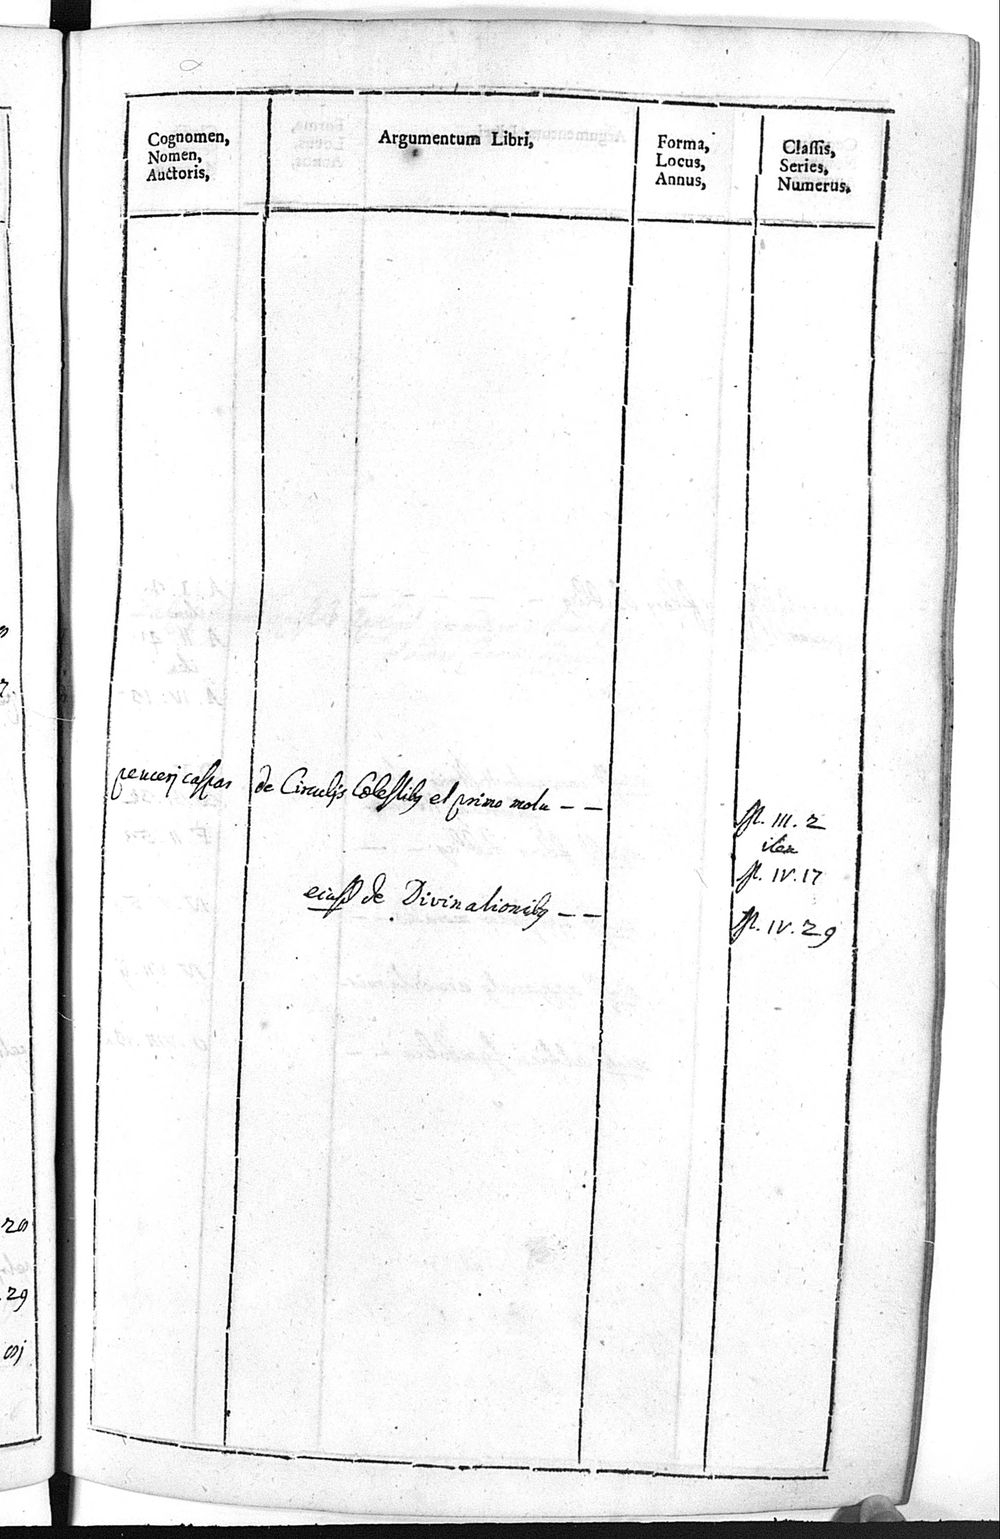 Cognomen,
Nomen,
Auctoris,
Argumentum Libri,
Forma,
Locus,
Annus,
Classis,
Series,
Numerus,
peucerj caspar de Circulis Cœlestibꝫ et primo motu – –
III. 2
item
IV. 17
eiusd de Divinationibꝫ – –
IV. 29
29